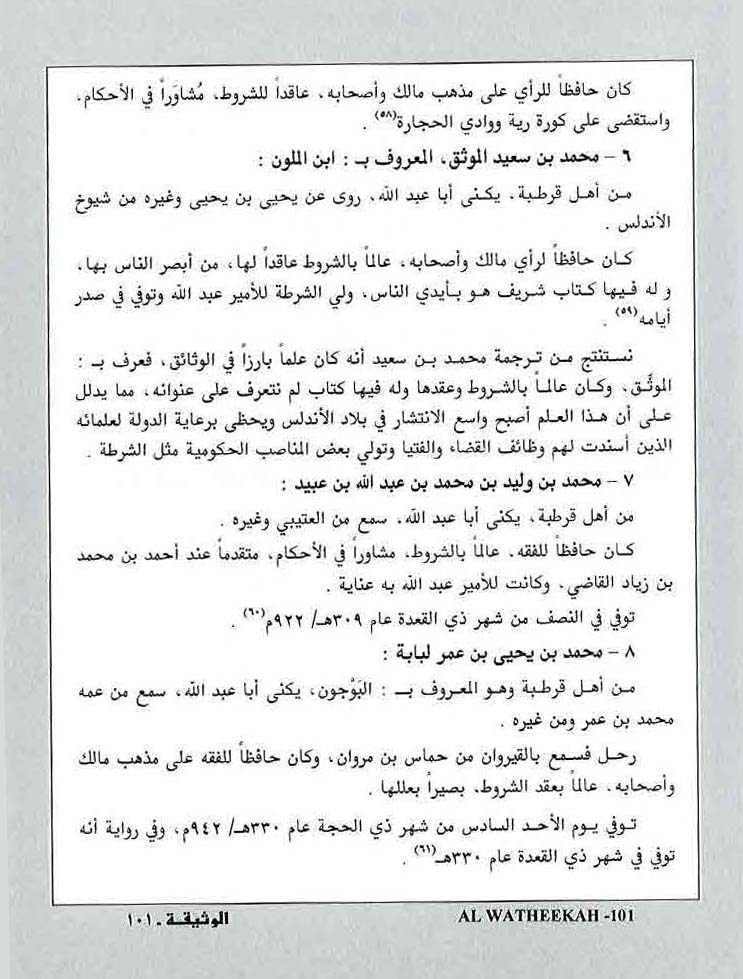 كان حافظاً للرأي على مذهب مالك وأصحابه، عاقداً للشروط، مُشاوَراً في الأحكام،
واستقضى على كورة رية ووادي الحجارة(٥٨) .
٦ – محمد بن سعيد الموثق، المعروف بـ : ابن الملون :
من أهل قرطبة، يكنى أبا عبد الله، روى عن يحيى بن يحيى وغيره من شيوخ
الأندلس .
كان حافظاً لرأي مالك وأصحابه، عالماً بالشروط عاقداً لها، من أبصر الناس بها،
و له فيها كتاب شريف هو بأيدي الناس، ولي الشرطة للأمير عبد الله وتوفي في صدر
أيامه(٥٩) .
نستنتج من ترجمة محمد بن سعيد أنه كان علماً بارزاً في الوثائق، فعرف بـ :
الموثَّق، وكان عالماً بالشروط وعقدها وله فيها كتاب لم نتعرف على عنوانه، مما يدلل
على أن هذا العلم أصبح واسع الانتشار في بلاد الأندلس ويحظى برعاية الدولة لعلمائه
الذين أسندت لهم وظائف القضاء والفتيا وتولي بعض المناصب الحكومية مثل الشرطة .
٧ – محمد بن وليد بن محمد بن عبد الله بن عبيد :
من أهل قرطبة، يكنى أبا عبد الله، سمع من العتيبي وغيره .
كان حافظاً للفقه، عالماً بالشروط، مشاوراً في الأحكام، متقدماً عند أحمد بن محمد
بن زياد القاضي، وكانت للأمير عبد الله به عناية .
توفي في النصف من شهر ذي القعدة عام ٣٠٩هـ/ ٩٢٢م(٦٠) .
٨ – محمد بن يحيى بن عمر لبابة :
من أهل قرطبة وهو المعروف بـ : البَوْجون، يكنى أبا عبد الله، سمع من عمه
محمد بن عمر ومن غيره .
رحل فسمع بالقيروان من حماس بن مروان، وكان حافظاً للفقه على مذهب مالك
وأصحابه، عالماً بعقد الشروط، بصيراً بعللها .
توفي يوم الأحد السادس من شهر ذي الحجة عام ٣٣٠هـ/ ٩٤٢م، وفي رواية أنه
توفي في شهر ذي القعدة عام ٣٣٠هـ(٦١) .
الوثيقة ـ ١٠١
AL WATHEEKAH -101